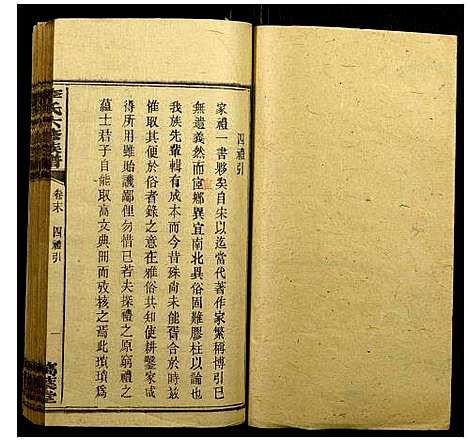 四禮引
家禮一書夥矣自宋以迄當代著作家繁稱博引已
無遺義然而窮鄉異宜南北異俗固難膠柱以論也
我族先輩輯有成本而今昔殊尚未能胥合於時茲
惟取其便於俗者錄之意在雅俗共知使耕鑿家咸
得所用雖貽譏鄙俚勿惜已若夫探禮之原窮禮之
蘊士君子自能取高文典冊而攷核之焉此瑣瑣為
李氏六修族譜
卷末
四禮引
一
堂